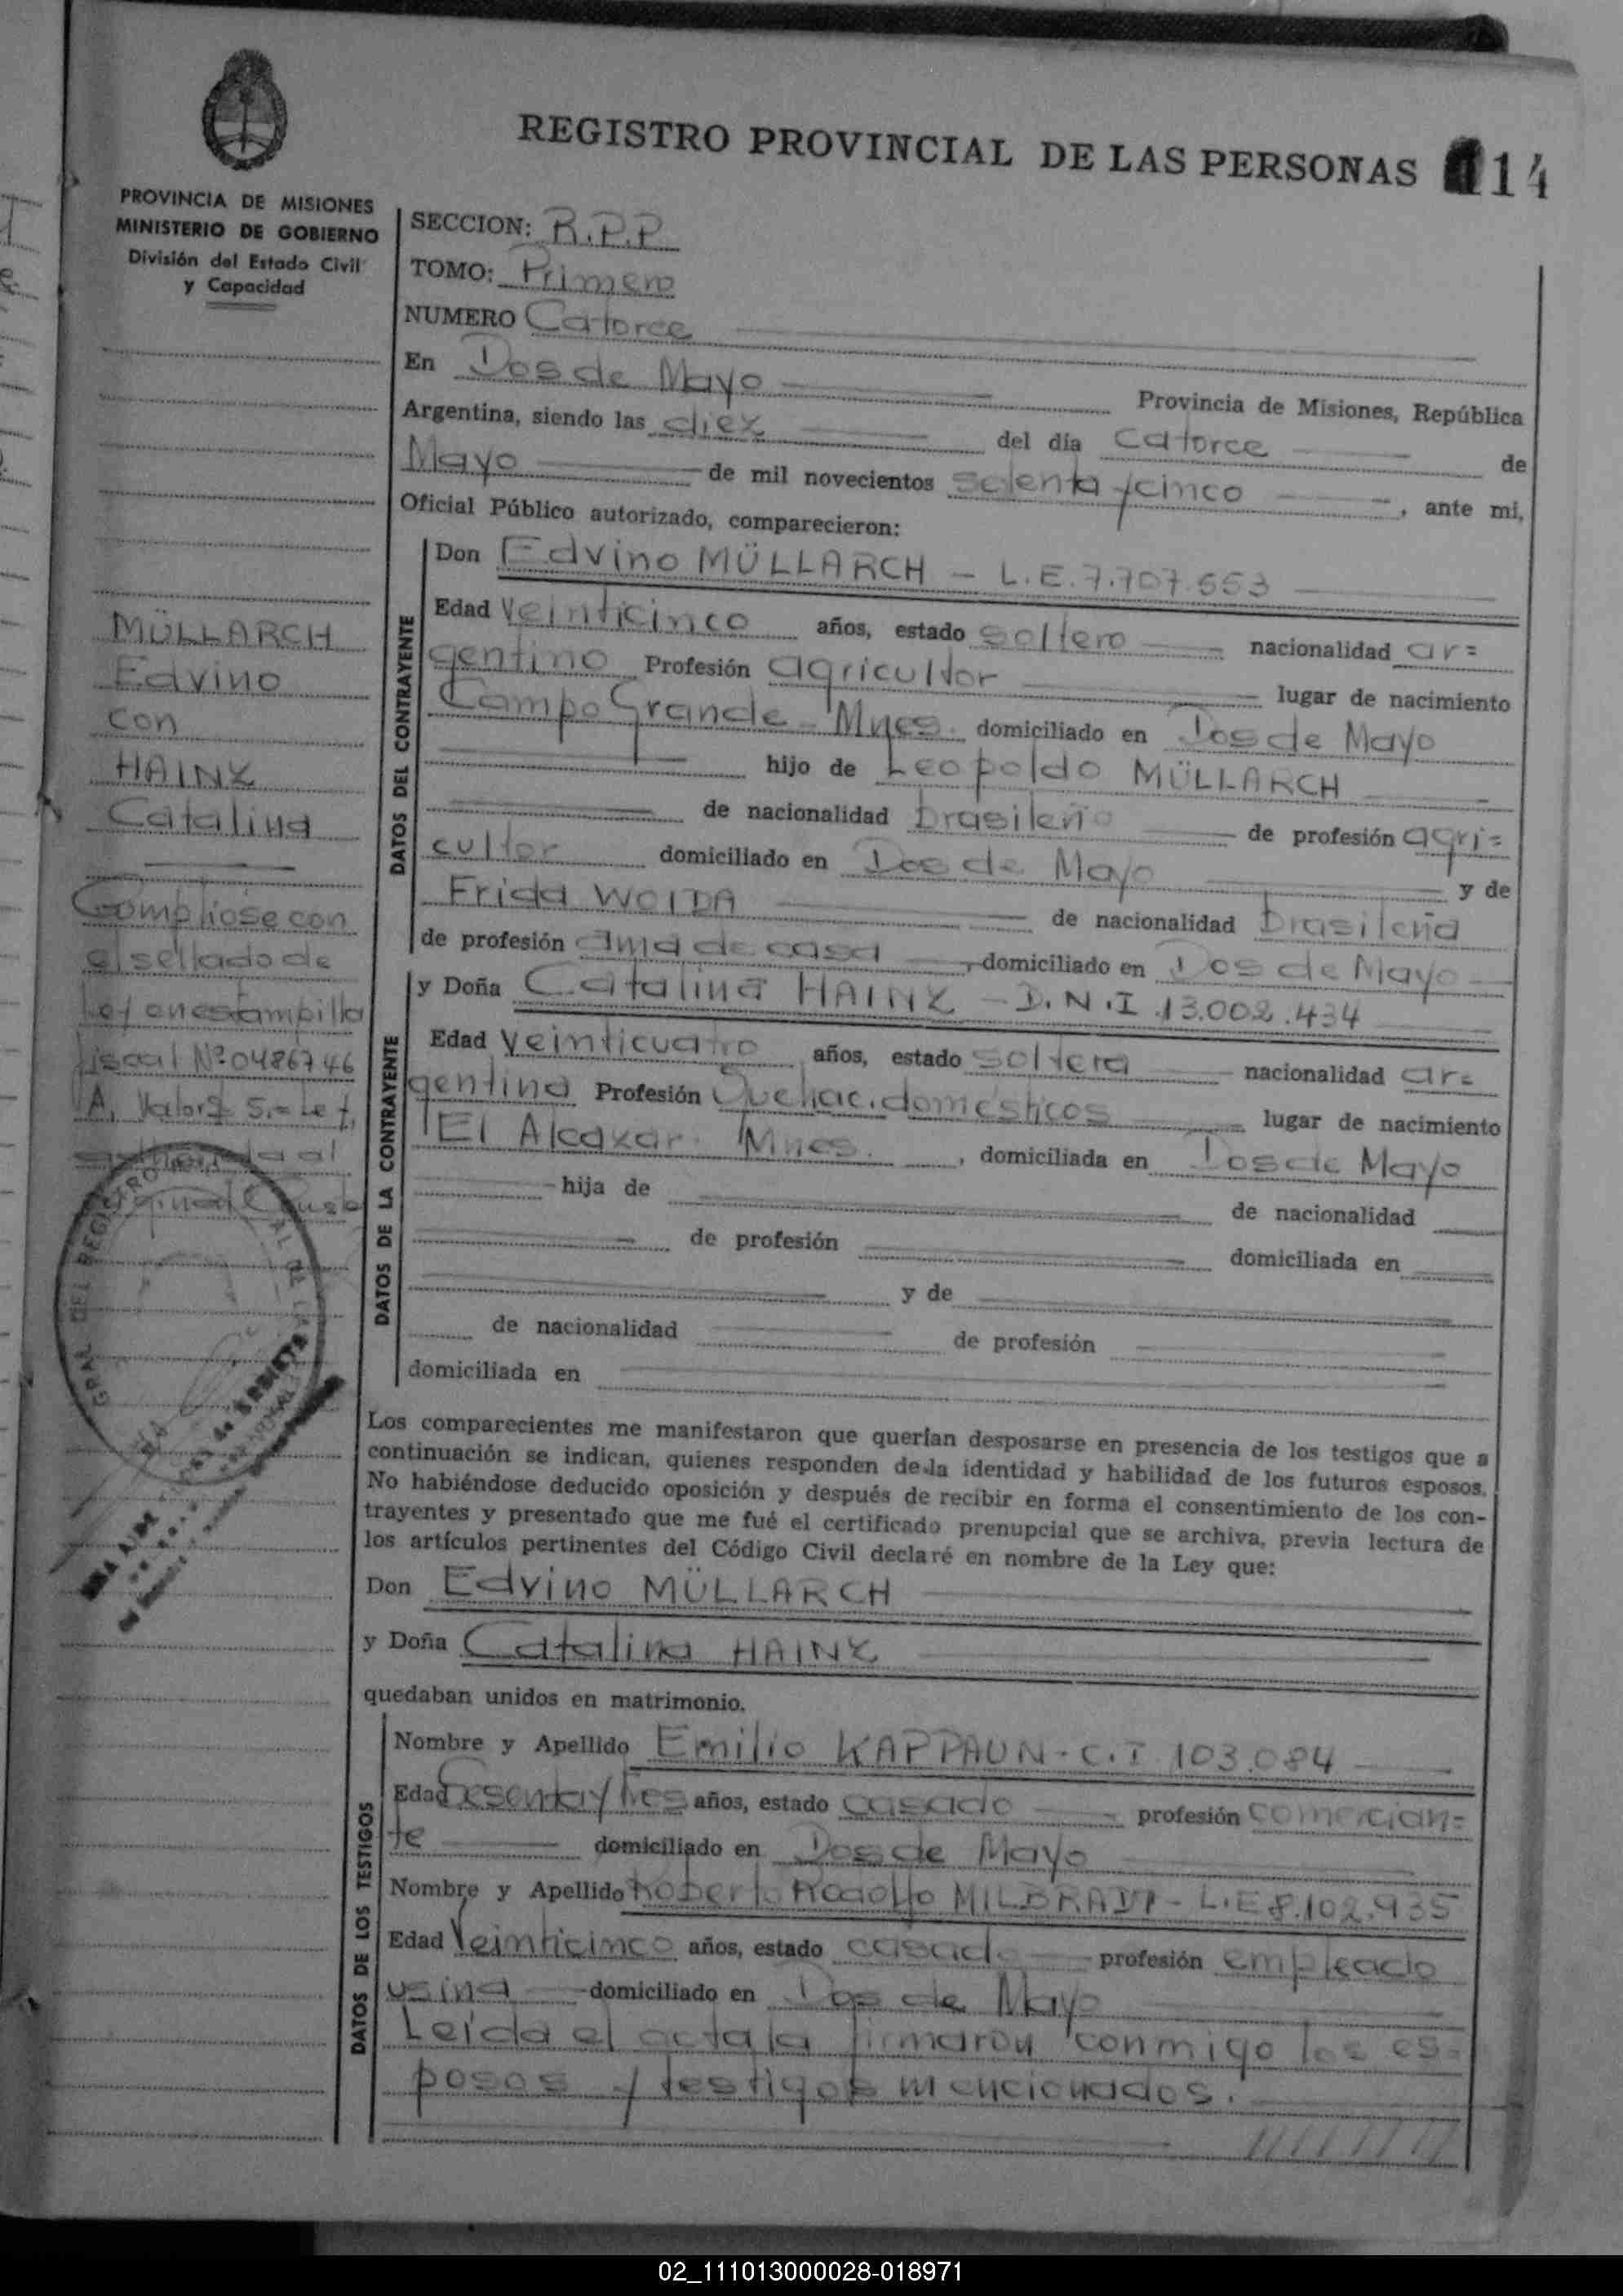 REGISTRO PROVINCIAL DE LAS PERSONAS 14
PROVINCIA DE MISIONES
MINISTERIO DE GOBIERNO
División del Estado Civil
y Capacidad
SECCION: R.P.P
TOMO: Primero
NUMERO Catorce
En Dos de Mayo Provincia de Misiones, República
Argentina, siendo las diez del día catorce de
Mayo de mil novecientos setenta y cinco, ante mi,
Oficial Público autorizado, comparecieron:
DATOS DEL CONTRAYENTE
Don Edvino MÜLLARCH - L.E. 7.707.553
Edad Veinticinco años, estado soltero nacionalidad ar=
gentino Profesión agricultor lugar de nacimiento
Campo Grande - Mnes. domiciliado en Dos de Mayo
hijo de Leopoldo MÜLLARCH
de nacionalidad brasileño de profesión agri=
cultor domiciliado en Dos de Mayo y de
Frida WOIDA de nacionalidad brasileña
de profesión ama de casa, domiciliado en Dos de Mayo
DATOS DE LA CONTRAYENTE
y Doña Catalina HAINZ - D.N.I. 13.002.434
Edad Veinticuatro años, estado soltera nacionalidad ar=
gentina Profesión Quehac. domésticos lugar de nacimiento
El Alcazar. Mnes. , domiciliada en Dos de Mayo
hija de
de nacionalidad
de profesión domiciliada en
y de
de nacionalidad de profesión
domiciliada en
Los comparecientes me manifestaron que querían desposarse en presencia de los testigos que a
continuación se indican, quienes responden de la identidad y habilidad de los futuros esposos.
No habiéndose deducido oposición y después de recibir en forma el consentimiento de los con-
trayentes y presentado que me fué el certificado prenupcial que se archiva, previa lectura de
los artículos pertinentes del Código Civil declaré en nombre de la Ley que:
Don Edvino MÜLLARCH
y Doña Catalina HAINZ
quedaban unidos en matrimonio.
DATOS DE LOS TESTIGOS
Nombre y Apellido Emilio KAPPAUN - C.I 103.084
Edad Sesenta y tres años, estado casado profesión comercian=
te domiciliado en Dos de Mayo
Nombre y Apellido Roberto Rodolfo MILBRADT - L.E 8.102.935
Edad Veinticinco años, estado casado profesión empleado
usina domiciliado en Dos de Mayo
Leída el acta la firmaron conmigo los es=
posos y testigos mencionados.
MÜLLARCH
Edvino
con
HAINZ
Catalina
Cumpliose con
el sellado de
Ley en estampilla
fiscal Nº 0486746
A, Valor $ 5.= Ley,
02_111013000028-018971